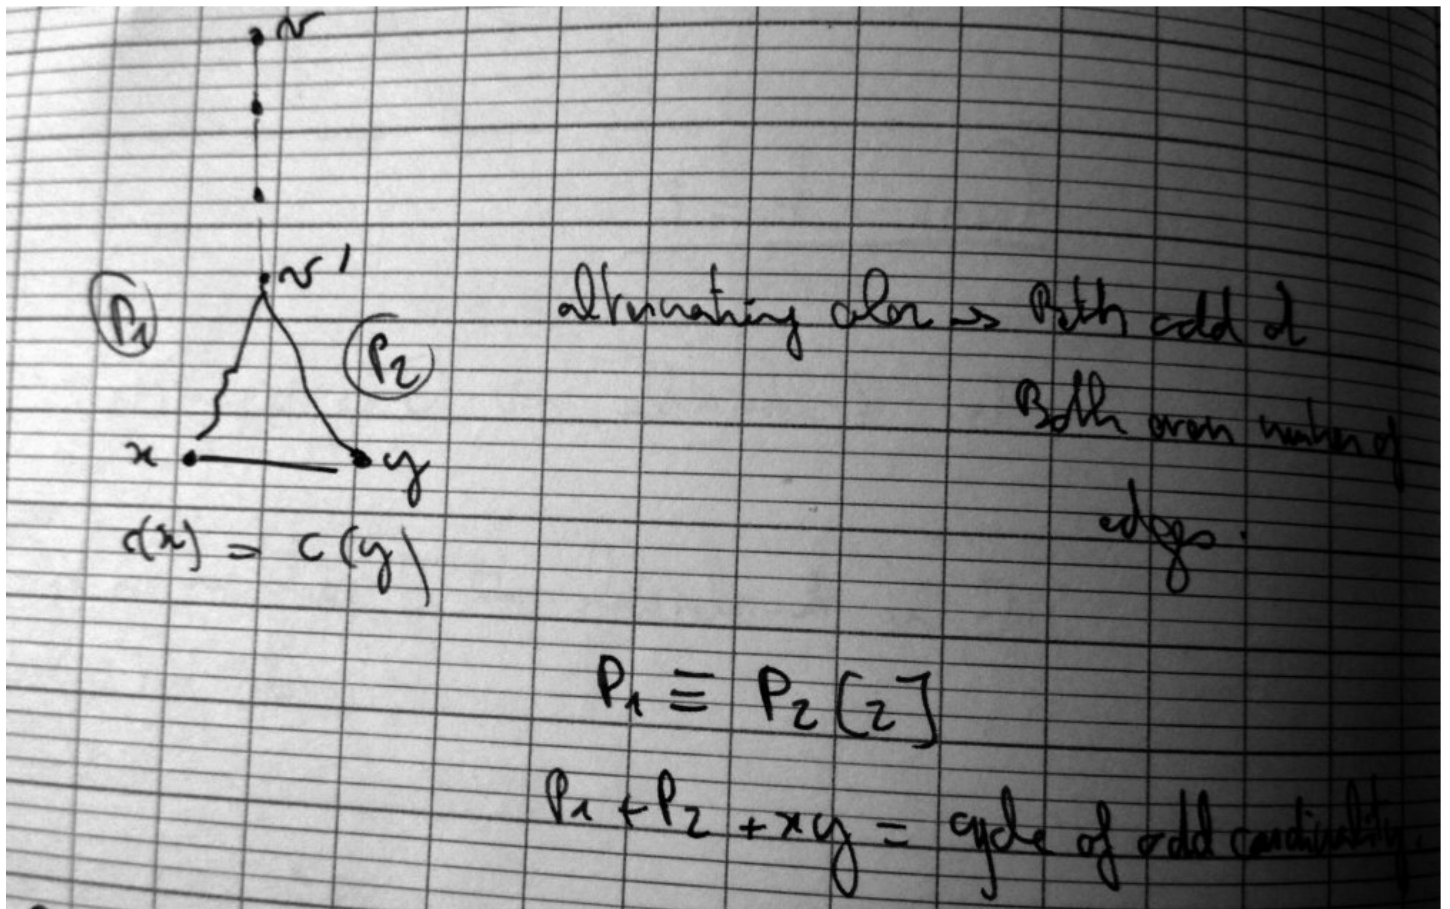 v
v'
P1
P2
alternating color → Both odd or
Both even number of
x y
edges.
c(x) = c(y)
P1 ≡ P2 [2]
P1 + P2 + xy = cycle of odd cardinality.